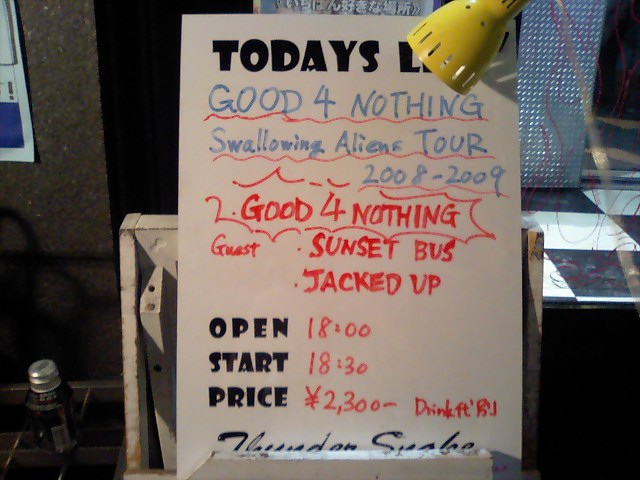 《いちばん好きな場所》
TODAYS
GOOD 4 NOTHING
Swallowing Aliens TOUR
2008-2009
2. GOOD 4 NOTHING
Guest ・SUNSET BUS
・JACKED UP
OPEN 18:00
START 18:30
PRICE ¥2,300- Drink代別
Thunder Snake